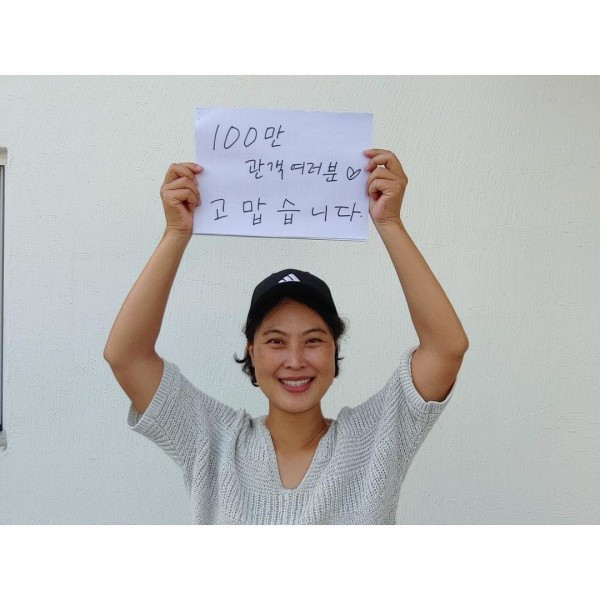 100만
관객여러분♡
고맙습니다.